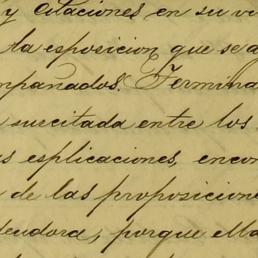 y citaciones en su vi
la esposicion que se a
mpañados. Termina
suscitada entre los
as esplicaciones, encon
de las proposicione
deudora, porque ella